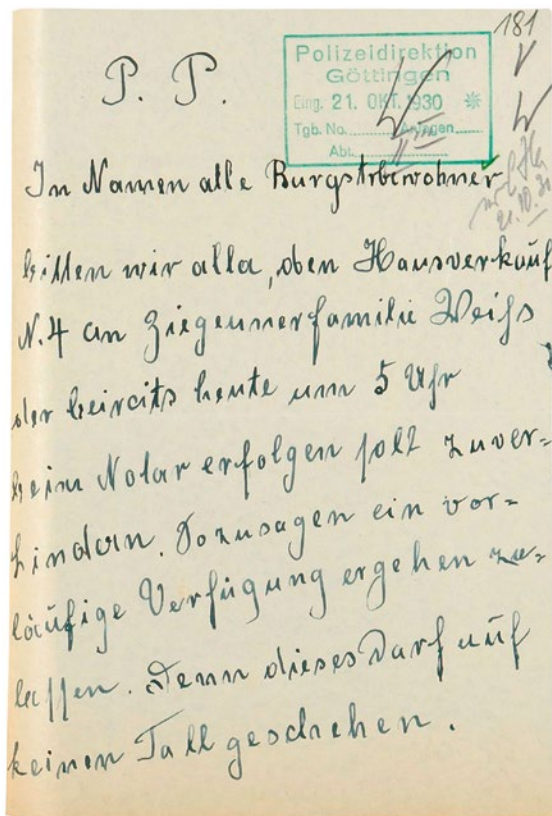 181
P. P.
Polizeidirektion
Göttingen
Eing. 21. OKT. 1930
Tgb. No. Anlagen
Abt.
21.10.30
In Namen alle Burgstrbewohner
bitten wir alla, den Hausverkauf
N. 4 an Ziegeunerfamilie Weihs
der beireits heute um 5 Uhr
beim Notar erfolgen soll zuver-
hindern. Sozusagen ein vor-
läufige Verfügung ergehen zu-
lassen. Denn dieses Darf auf
keinen Fall geschehen.